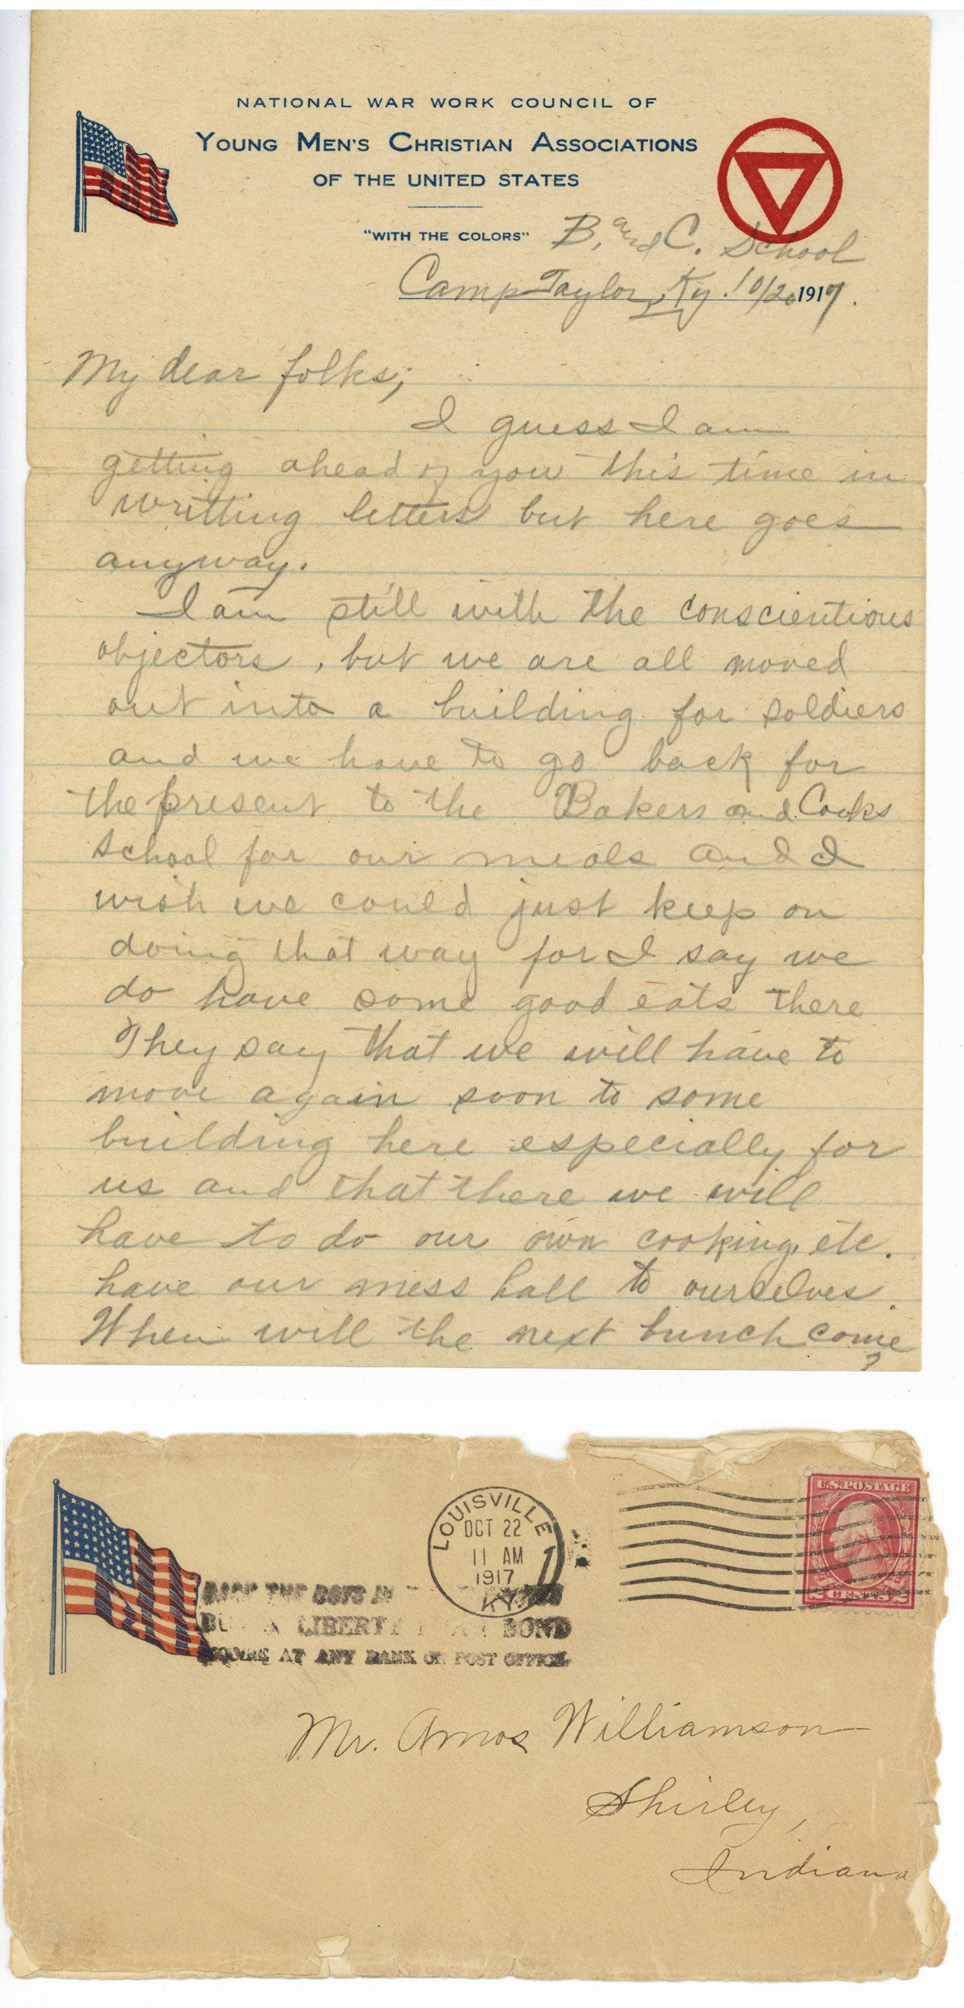 NATIONAL WAR WORK COUNCIL OF
YOUNG MEN'S CHRISTIAN ASSOCIATIONS
OF THE UNITED STATES
"WITH THE COLORS"
B. and C. School
Camp Taylor, Ky. 10/20 1917.
My dear folks;
I guess I am
getting ahead of you this time in
writting letters but here goes
anyway.
I am still with the conscientious
objectors, but we are all moved
out into a building for soldiers
and we have to go back for
the present to the Bakers and Cooks
School for our meals and I
wish we could just keep on
doing that way for I say we
do have some good eats there
They say that we will have to
move again soon to some
building here especially for
us and that there we will
have to do our own cooking, etc.
have our mess hall to ourselves.
When will the next bunch come
?
LOUISVILLE
OCT 22
11 AM
1917
KY.
1
LIBERTY BOND
AT ANY BANK OR POST OFFICE.
U.S. POSTAGE
2 CENTS 2
Mr. Amos Williamson
Shirley,
Indiana